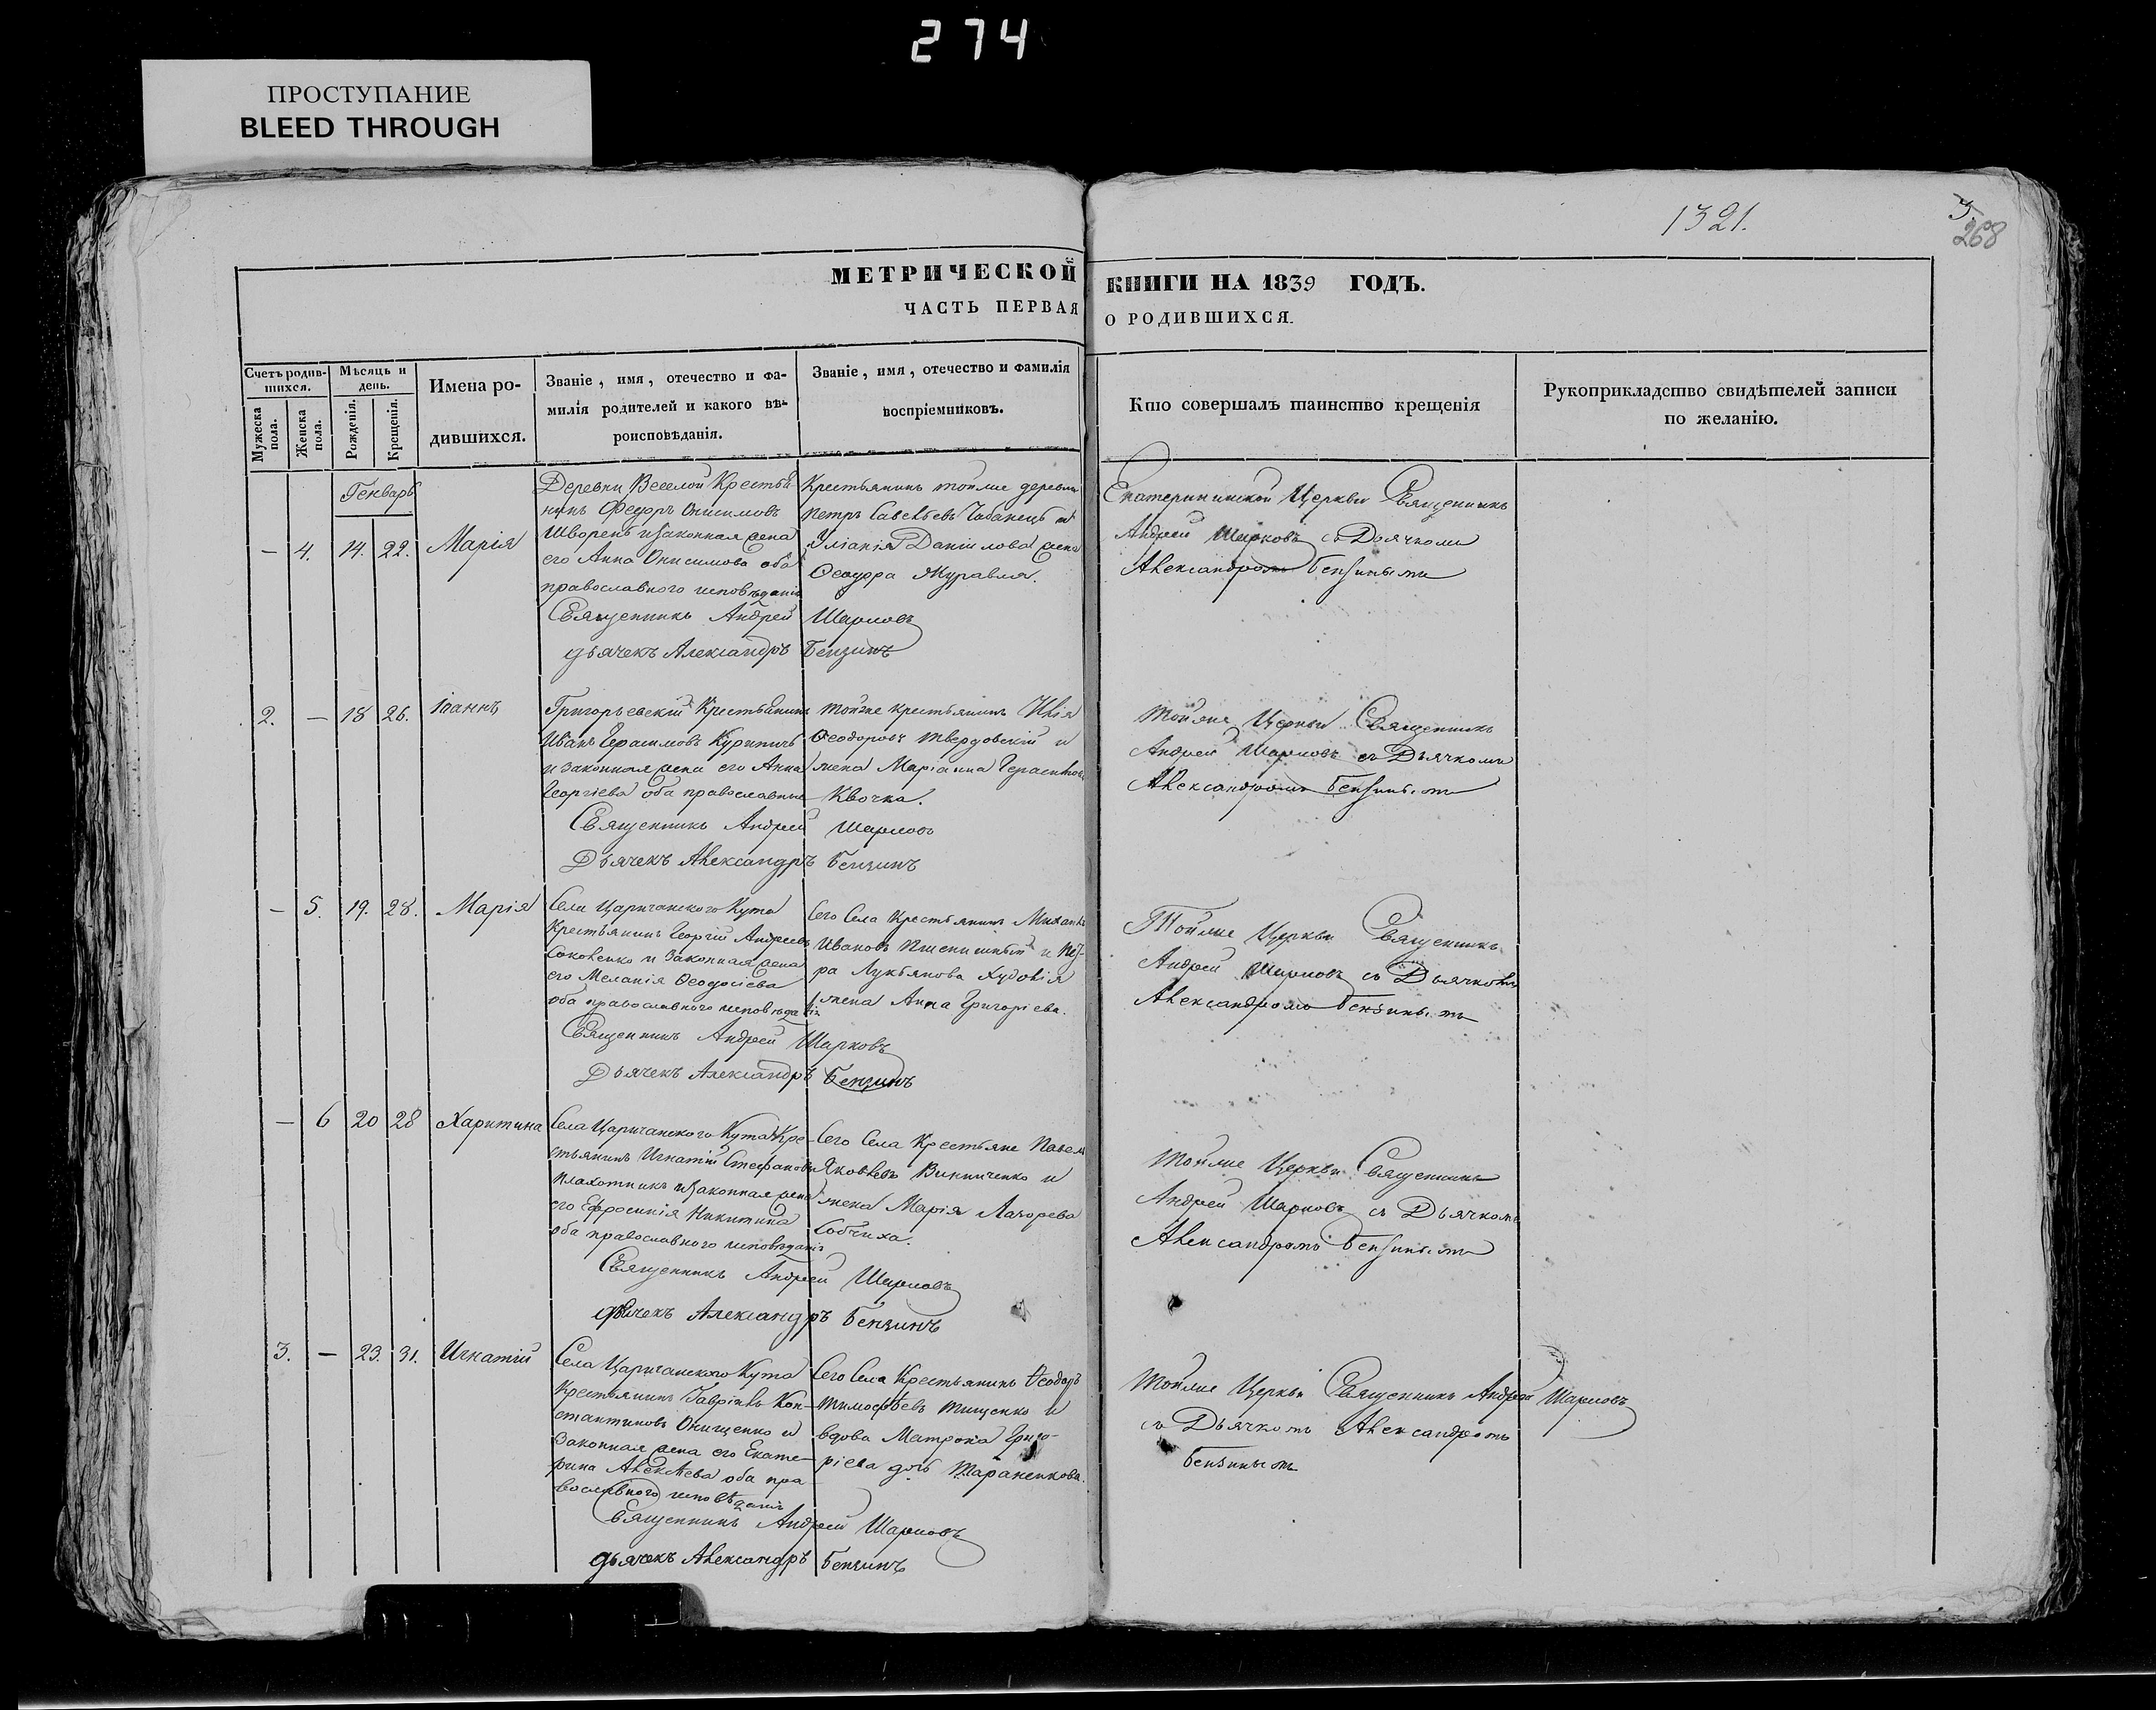 274
ПРОСТУПАНИЕ
BLEED THROUGH
1321.
3.
268
МЕТРИЧЕСКОЙ КНИГИ НА 1839 ГОДЪ.
ЧАСТЬ ПЕРВАЯ О РОДИВШИХСЯ.
Счетъ родив-
шихся.
Мужеска пола.
Женска пола.
Мѣсяцъ и
день.
Рожденія.
Крещенія.
Имена ро-
дившихся.
Званіе, имя, отечество и фа-
милія родителей и какого вѣ-
роисповѣданія.
Званіе, имя, отечество и фамилія
воспріемниковъ.
Кто совершалъ таинство крещенія
Рукоприкладство свидѣтелей записи
по желанію.
Генварь
— 4. 14. 22. Марія
Деревни Веселой Крестья-
нинъ Феодръ Онисимовъ
Шворень и законная жена
его Анна Онисимова оба
православного исповѣданія
Крестьянинъ тойже деревни
Петръ Савельевъ Чабанецъ и
Іуліанія Даніилова жена
Феодора Журавля.
Священникъ Андрей Шарковъ
дьячекъ Александръ Бензинъ
Екатерининской Церкви Священникъ
Андрей Шарковъ съ Дьячкомъ
Александромъ Бензинымъ
2. — 18 26. Іоаннъ
Григорьевскій Крестьянинъ
Иванъ Герасимовъ Курипичъ
и законная жена его Анна
Георгіева оба православные
тойже крестьянинъ Илія
Феодоровъ Твердовскій и
жена Маріанна Герасимова
Квочка.
Священникъ Андрей Шарковъ
Дьячекъ Александръ Бензинъ
Тойже Церкви Священникъ
Андрей Шарковъ съ Дьячкомъ
Александромъ Бензинымъ
— 5. 19. 28. Марія
Села Царичанского Кута
Крестьянинъ Георгій Андреевъ
Соковенко и Законная жена
его Меланія Феодосіева
оба православного исповѣданія
Сего Села Крестьянинъ Михаилъ
Ивановъ Пшенишный и Пет-
ра Лукьянова Худовія
жена Анна Григоріева.
Священникъ Андрей Шарковъ
Дьячекъ Александръ Бензинъ
Тойже Церкви Священникъ
Андрей Шарковъ съ Дьячкомъ
Александромъ Бензинымъ
— 6 20 28 Харитина
Села Царичанского Кута Кре-
стьянинъ Игнатій Стефановъ
Плахотникъ и Законная жена
его Ефросинія Никитина
оба православного исповѣданія
Сего Села Крестьяне Павелъ
Яковлевъ Винниченко и
жена Марія Лазорева
Собчиха.
Священникъ Андрей Шарковъ
дьячекъ Александръ Бензинъ
Тойже Церкви Священникъ
Андрей Шарковъ съ Дьячкомъ
Александромъ Бензинымъ
3. — 23. 31. Игнатій
Села Царичанского Кута
Крестьянинъ Гавріилъ Кон-
стантиновъ Онищенко и
Законная жена его Екате-
рина Алексѣева оба пра-
вославного исповѣданія
Сего Села Крестьянинъ Феодоръ
Тимофѣевъ Тищенко и
вдова Матрона Григо-
ріева дочь Тараненкова.
Священникъ Андрей Шарковъ
дьячекъ Александръ Бензинъ
Тойже Церкви Священникъ Андрей Шарковъ
съ Дьячкомъ Александромъ
Бензинымъ